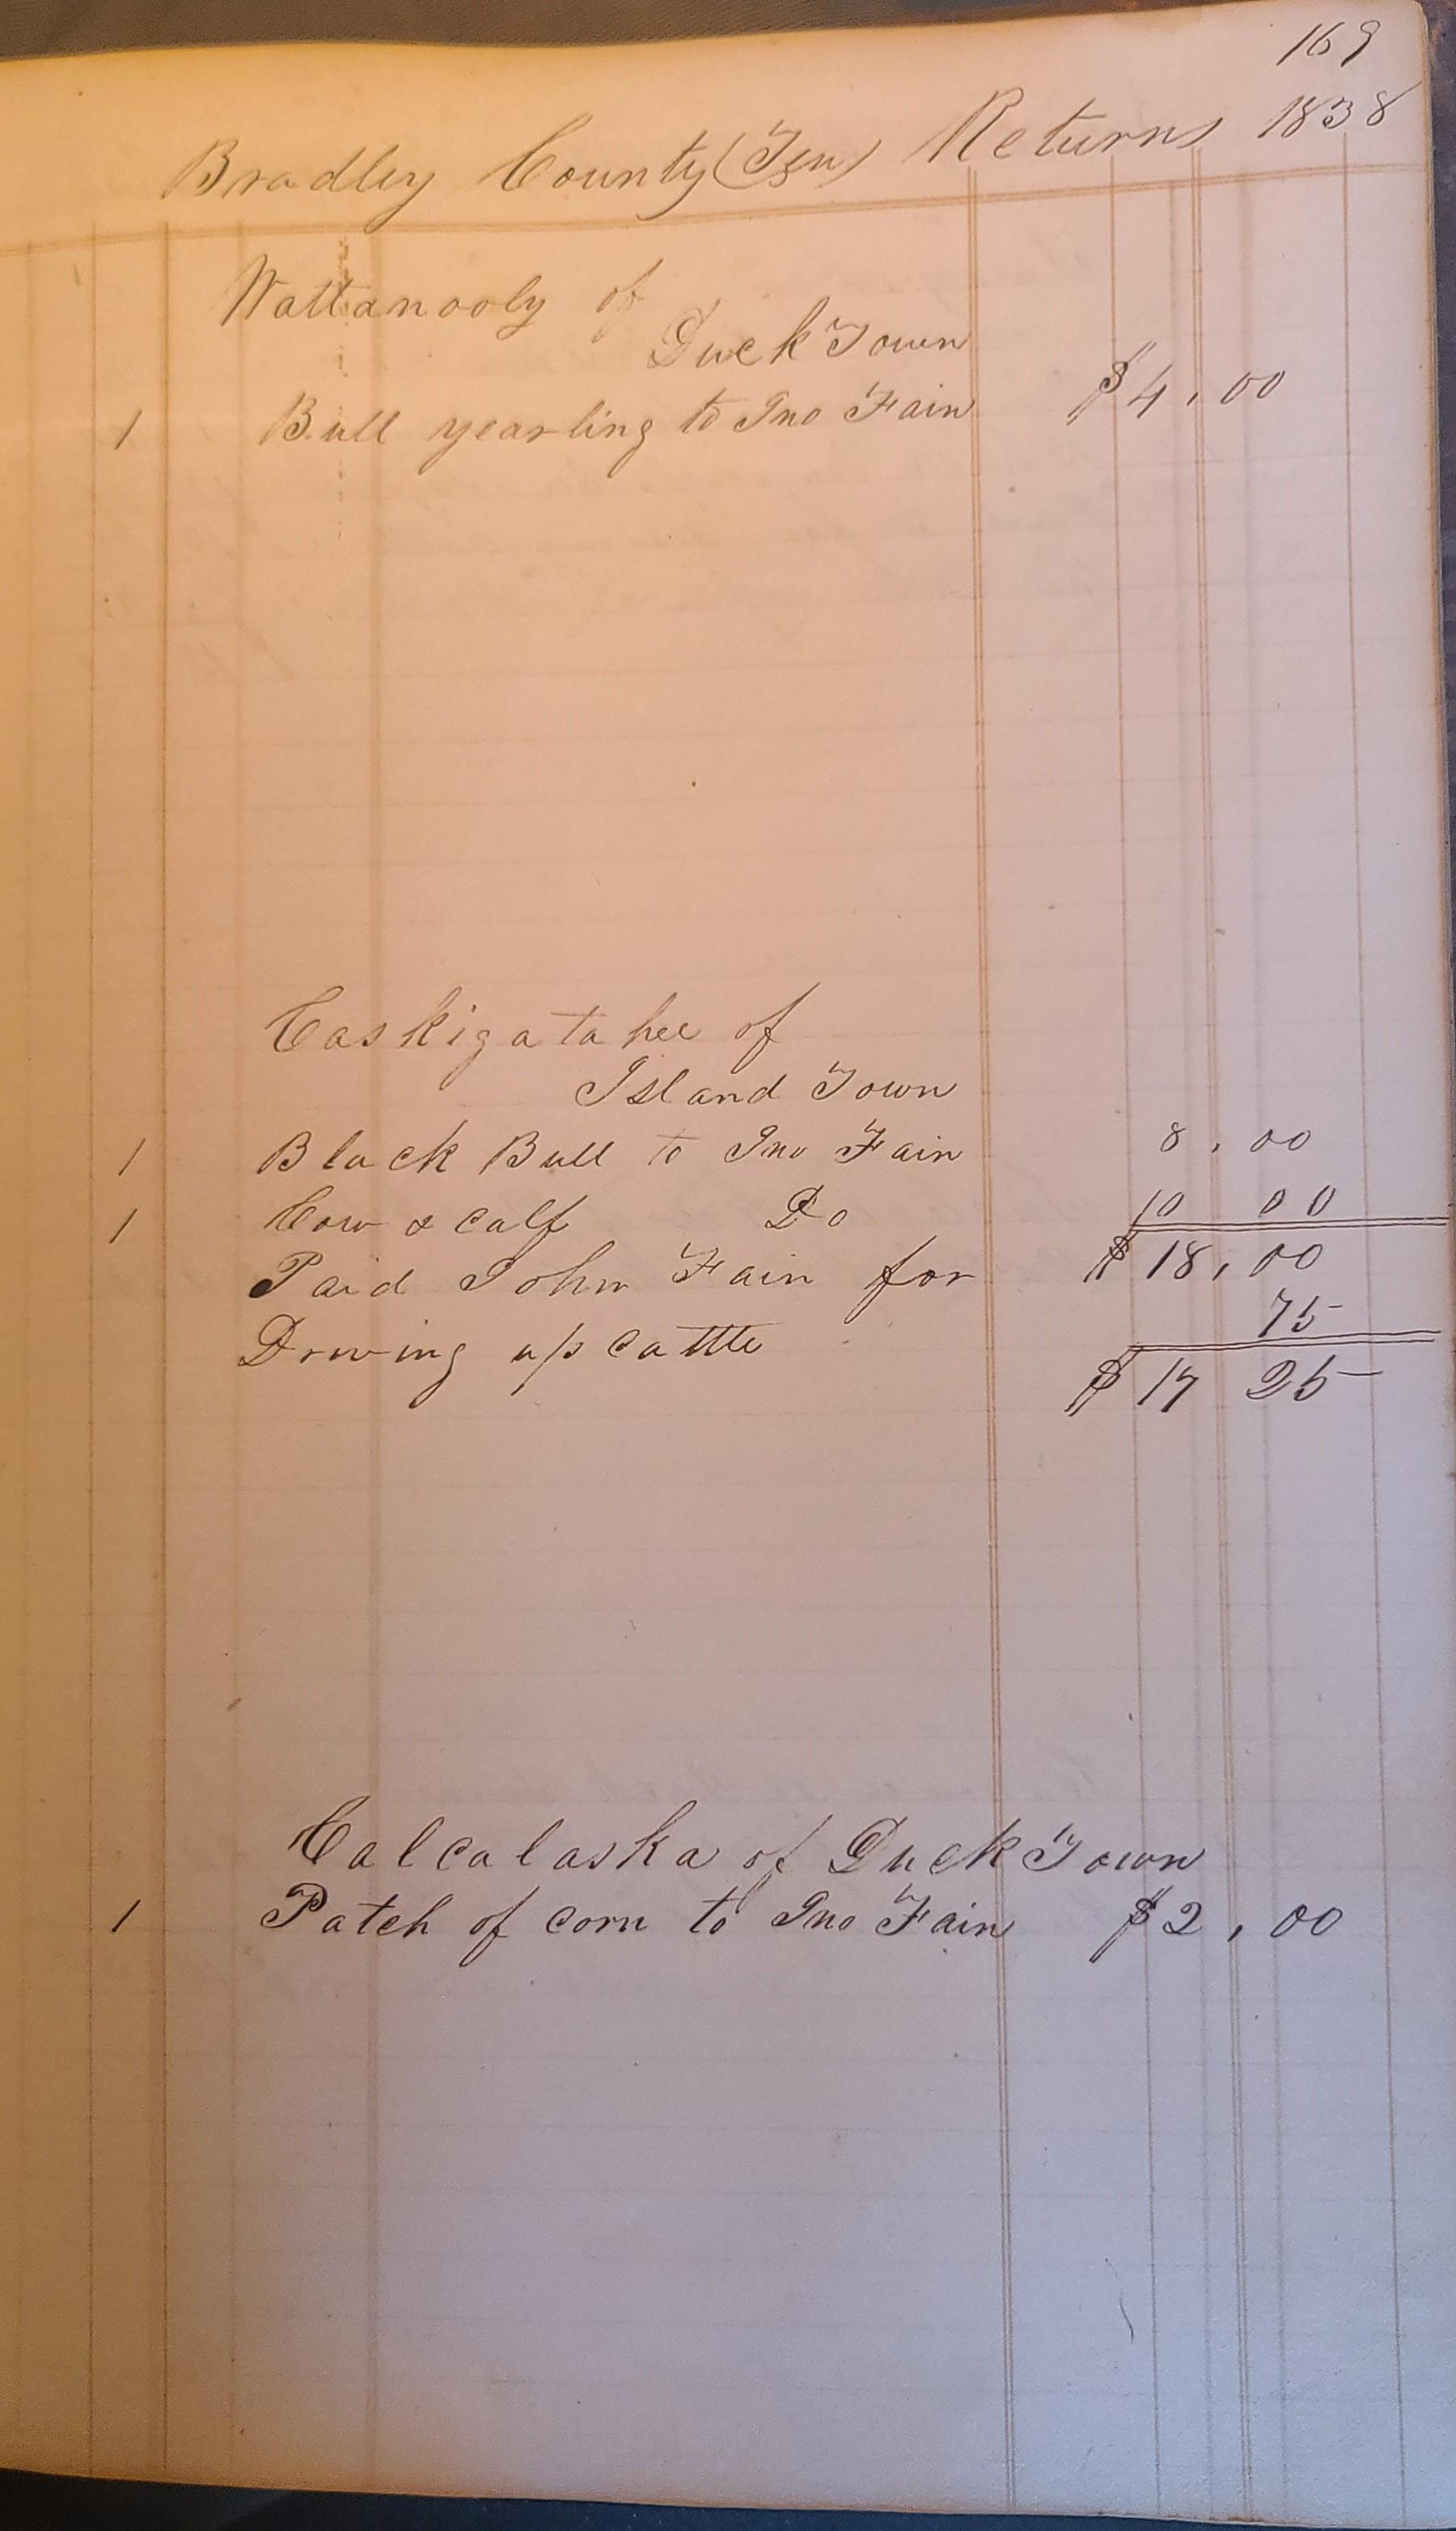 169
Bradley County (Ten) Returns 1838
Wattanooly of
Duck Town
1 Bull yearling to Jno Fain $4,00
Caskigatahee of
Island Town
1 Black Bull to Jno Fain 8,00
1 Cow & calf Do 10 00
Paid John Fain for $18,00
Driving up cattle 75
$17 25
Calcalaska of Duck Town
1 Patch of corn to Jno Fain $2,00